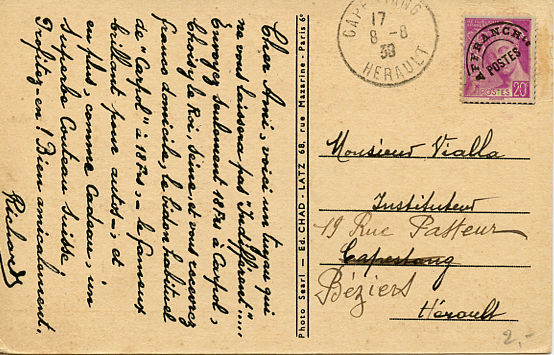 Cher Ami, voici un tuyau qui
ne vous laissera pas "Indifférent"...
Envoyez seulement 18 frs à Carpol,
Choisy le Roi, Seine, et vous recevrez
franco domicile, le bidon habituel
de "Carpol" à 18 frs. - le fameux
brillant pour autos -; et
en plus, comme Cadeau, un
superbe Couteau Suisse
Profitez-en! Bien amicalement.
Richard
Photo Searl — Ed. CHAD - LATZ 68, rue Mazarine - Paris 6e
17
8 - 8
38
HERAULT
AFFRANCHts
POSTES
POSTES
20c
Monsieur Vialla
Instituteur
19 Rue Pasteur
Capestang
Béziers
Hérault
2,-